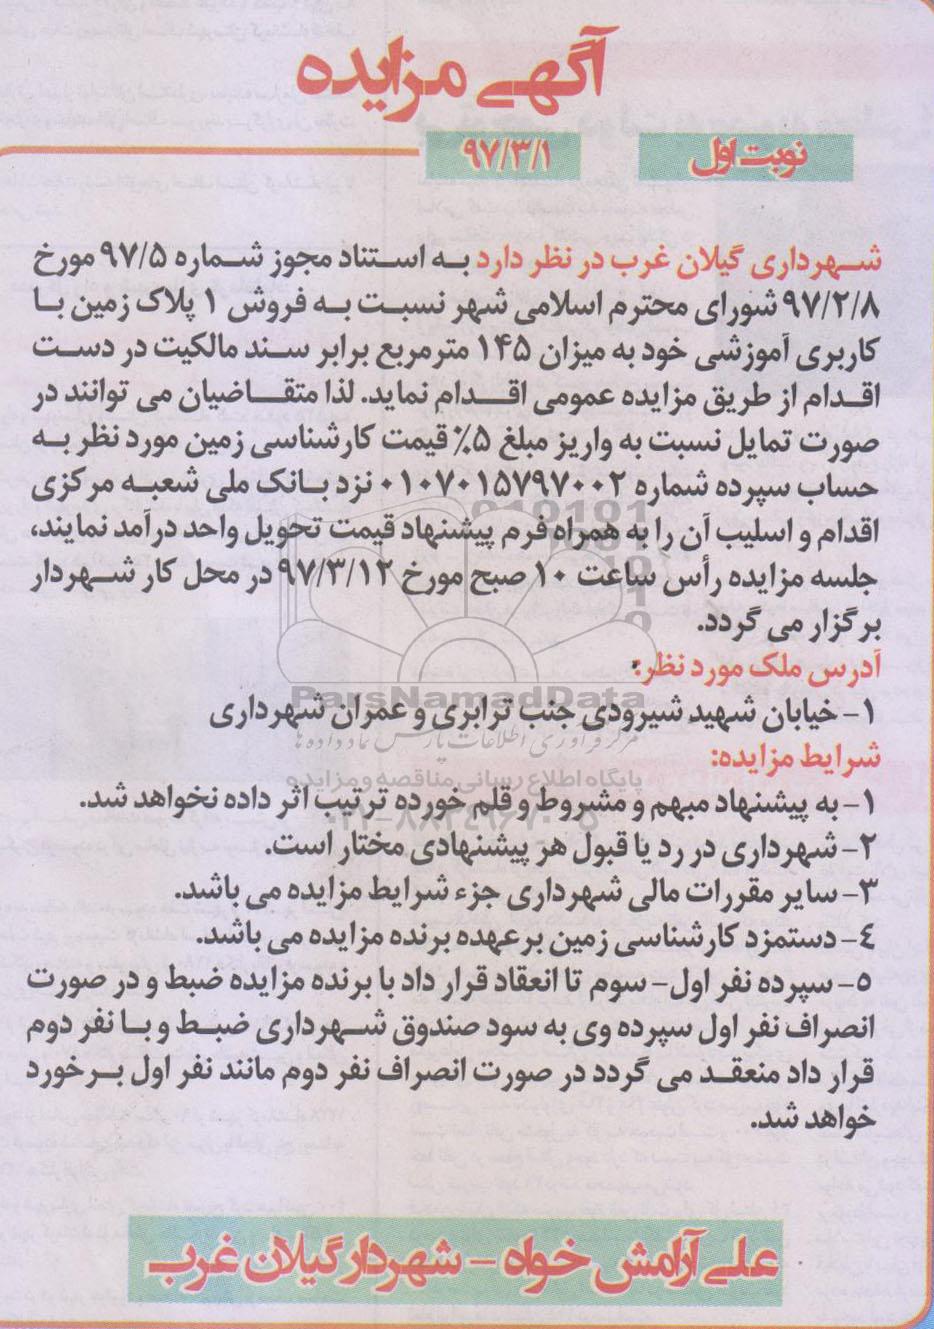 آگهی مزایده
نوبت اول ۹۷/۳/۱
شهرداری گیلان غرب در نظر دارد به استناد مجوز شماره ۹۷/۵ مورخ
۹۷/۲/۸ شورای محترم اسلامی شهر نسبت به فروش ۱ پلاک زمین با
کاربری آموزشی خود به میزان ۱۴۵ مترمربع برابر سند مالکیت در دست
اقدام از طریق مزایده عمومی اقدام نماید. لذا متقاضیان می توانند در
صورت تمایل نسبت به واریز مبلغ ۵٪ قیمت کارشناسی زمین مورد نظر به
حساب سپرده شماره ۰۱۰۷۰۱۵۷۹۷۰۰۲ نزد بانک ملی شعبه مرکزی
اقدام و اسلیپ آن را به همراه فرم پیشنهاد قیمت تحویل واحد درآمد نمایند،
جلسه مزایده رأس ساعت ۱۰ صبح مورخ ۹۷/۳/۱۲ در محل کار شهردار
برگزار می گردد.
آدرس ملک مورد نظر:
۱- خیابان شهید شیرودی جنب ترابری و عمران شهرداری
شرایط مزایده:
۱- به پیشنهاد مبهم و مشروط و قلم خورده ترتیب اثر داده نخواهد شد.
۲- شهرداری در رد یا قبول هر پیشنهادی مختار است.
۳- سایر مقررات مالی شهرداری جزء شرایط مزایده می باشد.
۴- دستمزد کارشناسی زمین برعهده برنده مزایده می باشد.
۵- سپرده نفر اول- سوم تا انعقاد قرار داد با برنده مزایده ضبط و در صورت
انصراف نفر اول سپرده وی به سود صندوق شهرداری ضبط و با نفر دوم
قرار داد منعقد می گردد در صورت انصراف نفر دوم مانند نفر اول برخورد
خواهد شد.
علی آرامش خواه - شهردار گیلان غرب
ParsNamadData
مرکز فرآوری اطلاعات پارس نماد داده ها
پایگاه اطلاع رسانی مناقصه و مزایده
۰۲۱-۸۸۳۴۹۶۷۰-۵